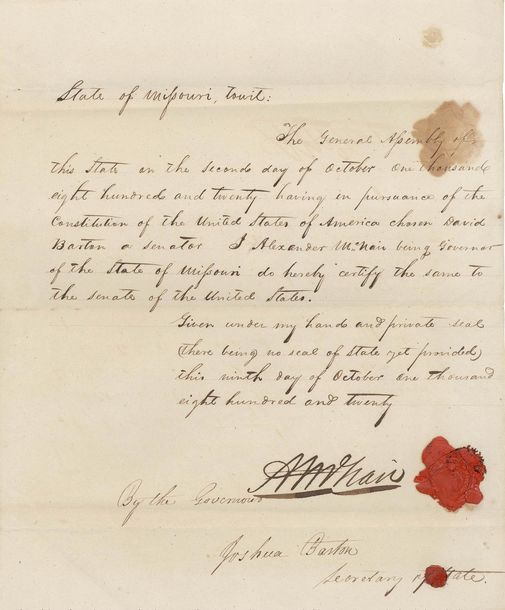 State of Missouri, towit:
The General Assembly of
this State on the second day of October One thousand
eight hundred and twenty having in pursuance of the
Constitution of the United States of America chosen David
Barton a senator I Alexander McNair being Governor
of the State of Missouri do hereby certify the same to
the senate of the United States.
Given under my hand and private seal
(there being no seal of state yet provided)
this ninth day of October one thousand
eight hundred and twenty
AMcNair
By the Governour
Joshua Barton
Secretary of State.